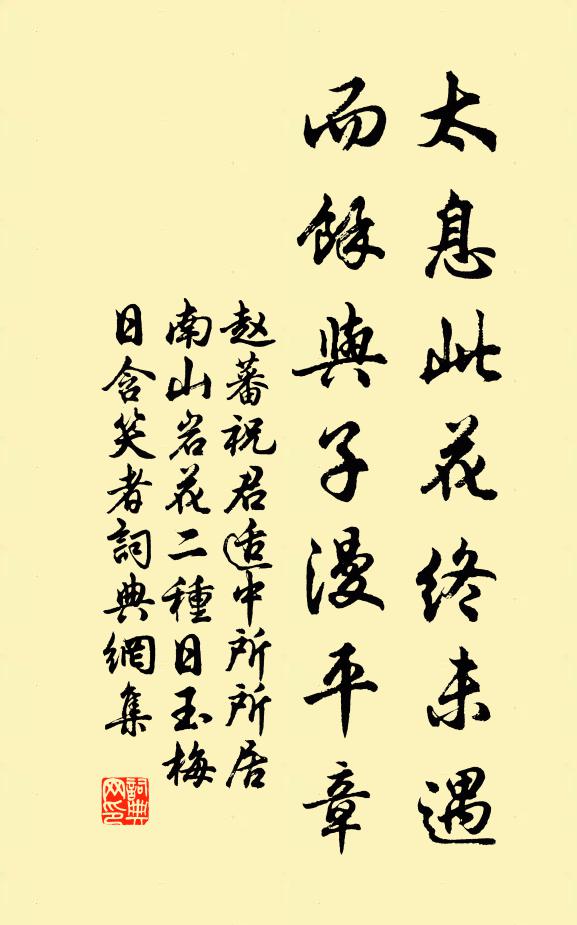 太息此花終未遇
而餘與子漫平章
赵蕃祝君适中所所居
南山岩花二種日玉梅
日含笑者詞典網集
詞典網印